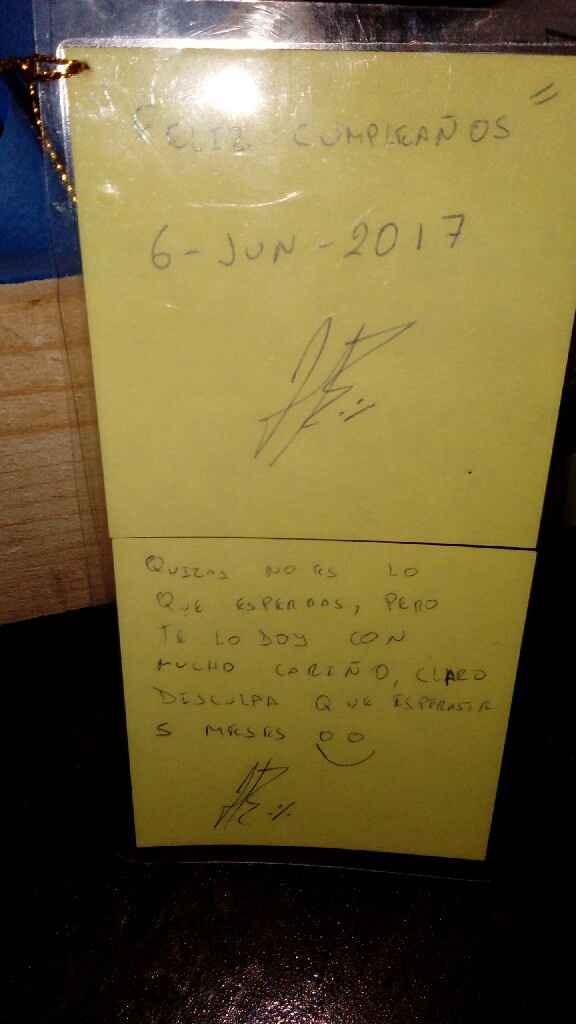 "FELIZ CUMPLEAÑOS"
6-JUN-2017
QUIZAS NO ES LO
QUE ESPERBAS, PERO
TE LO DOY CON
MUCHO CARIÑO, CLARO
DISCULPA QUE ESPERASTE
5 MESES